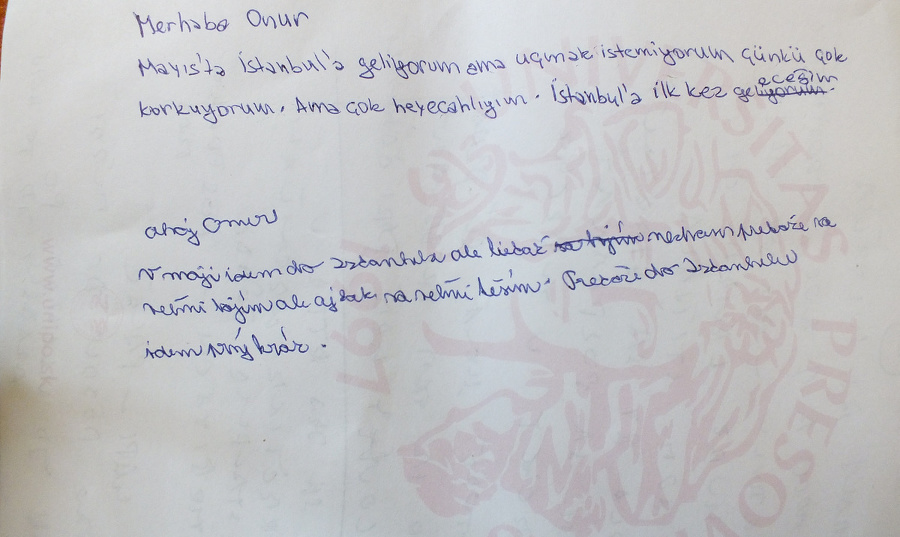 Merhaba Onur
Mayıs'ta İstanbul'a geliyorum ama uçmak istemiyorum çünkü çok
korkuyorum. Ama çok heyecanlıyım. İstanbul'a ilk kez geleceğim.
ahoj Onur
V máji idem do Istanbulu ale lietať nechcem pretože sa
veľmi bojím ale aj tak sa veľmi teším. Pretože do Istanbulu
idem prvý krát.
1997
PRESOV